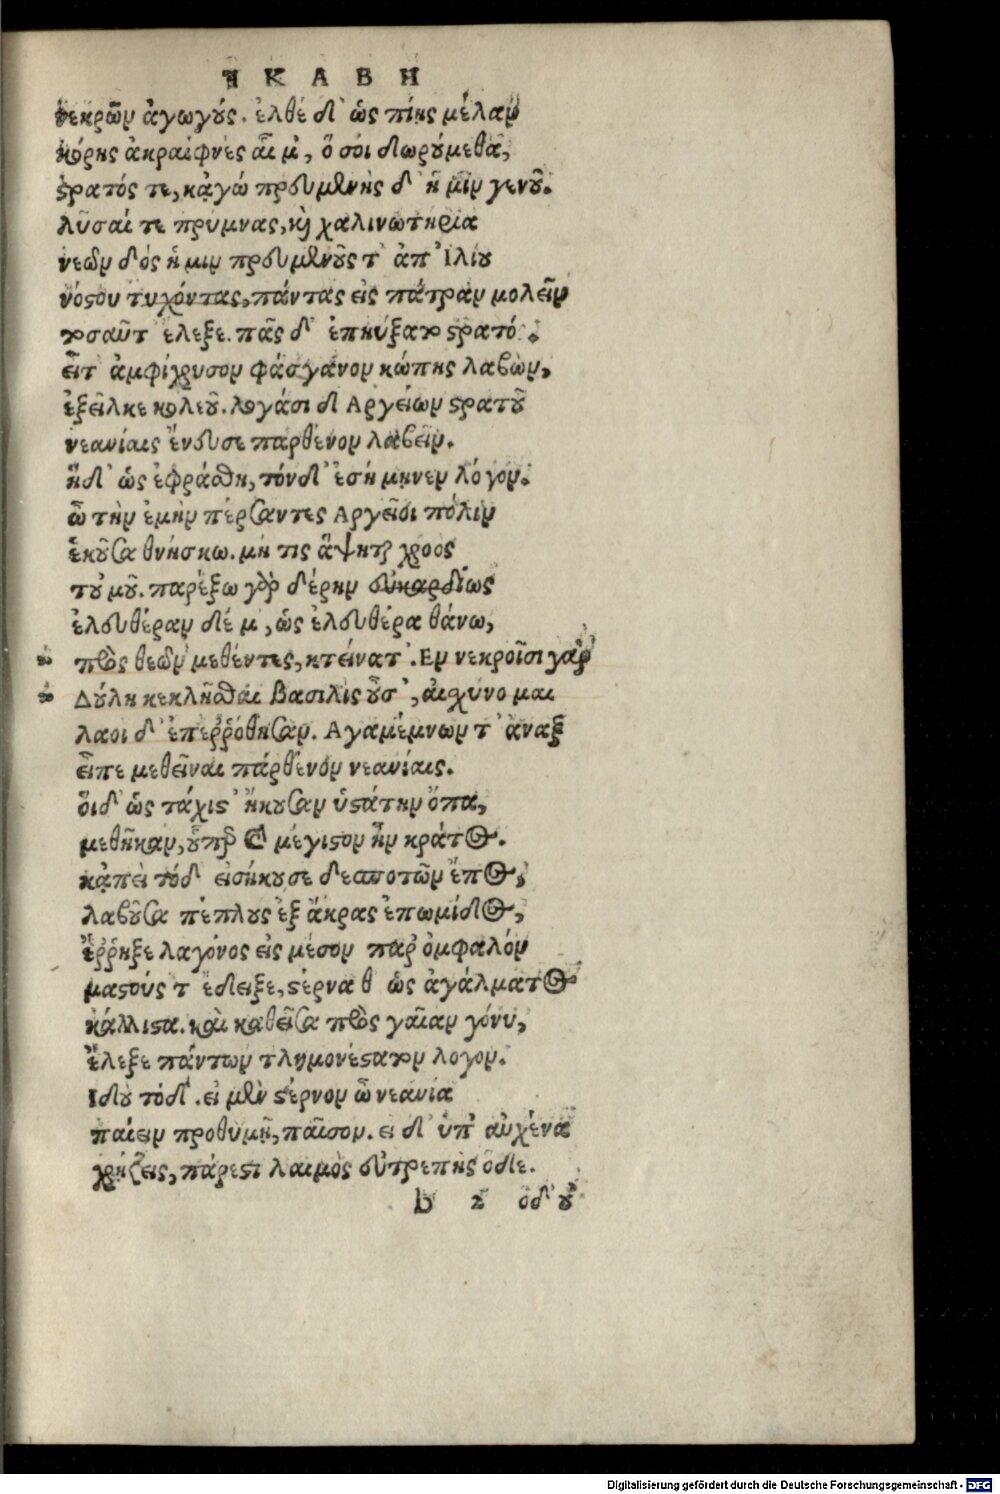 ΕΚΑΒΗ
νεκρῶν ἀγωγούς. ἐλθὲ δ' ὡς πίῃς μέλαν
κόρης ἀκραιφνὲς αἷμ', ὅ σοι δωρούμεθα,
στρατός τε, κἀγώ πρευμενὴς δ' ἡμῖν γενοῦ.
λῦσαί τε πρύμνας, καὶ χαλινωτήρια
νεῶν δὸς ἡμιν πρευμενοῦς τ' ἀπ' Ἰλίου
νόστου τυχόντας, πάντας εἰς πάτραν μολεῖν
τοσαῦτ' ἔλεξε. πᾶς δ' ἐπηύξατο στρατός.
εἶτ' ἀμφίχρυσον φάσγανον κώπης λαβὼν,
ἐξεῖλκε κολεοῦ. λογάσι δ' Αργείων στρατοῦ
νεανίαις ἔνευσε παρθένον λαβεῖν.
ἡ δ' ὡς ἐφράσθη, τόνδ' ἐσήμηνεν λόγον.
ὦ τὴν ἐμὴν πέρσαντες Αργεῖοι πόλιν
ἑκοῦσα θνήσκω. μή τις ἅψηται χροος
τοὐμοῦ. παρέξω γὰρ δέρην εὐκαρδίως
ἐλευθέραν δέ μ', ὡς ἐλευθέρα θάνω,
πρὸς θεῶν μεθέντες, κτείνατ'. Εν νεκροῖσι γὰρ
Δούλη κεκλῆσθαι Βασιλὶς οὖσ', αἰσχύνομαι
λαοι δ' ἐπερρόθησαν. Αγαμέμνων τ' ἀναξ
εἶπε μεθεῖναι πάρθενον νεανίαις.
ὅιδ' ὡς τάχιστ' ἤκουσαν ὑστάτην ὄπα,
μεθῆκαν, οὗπερ καὶ μέγιστον ἦν κράτος.
κἀπεὶ τόδ' εἰσήκουσε δεσποτῶν ἔπος,
λαβοῦσα πέπλους ἐξ ἄκρας ἐπωμίδος,
ἔρρηξε λαγόνος εἰς μέσον παρ' ὀμφαλόν
μαστούς τ' ἔδειξε, στέρνα θ' ὡς ἀγάλματος
κάλλιστα. καὶ καθεῖσα πρὸς γαῖαν γόνυ,
ἔλεξε πάντων τλημονέστατον λογον.
Ιδου τόδ'. εἰ μὲν στέρνον ὦ νεανία
παίειν προθυμῇ, παῖσον. ει δ' ὑπ' αὐχένα
χρῄζεις, πάρεστι λαιμὸς εὐτρεπὴς ὅδε.
b 2 ὁδ' οὐ
Digitalisierung gefördert durch die Deutsche Forschungsgemeinschaft - DFG